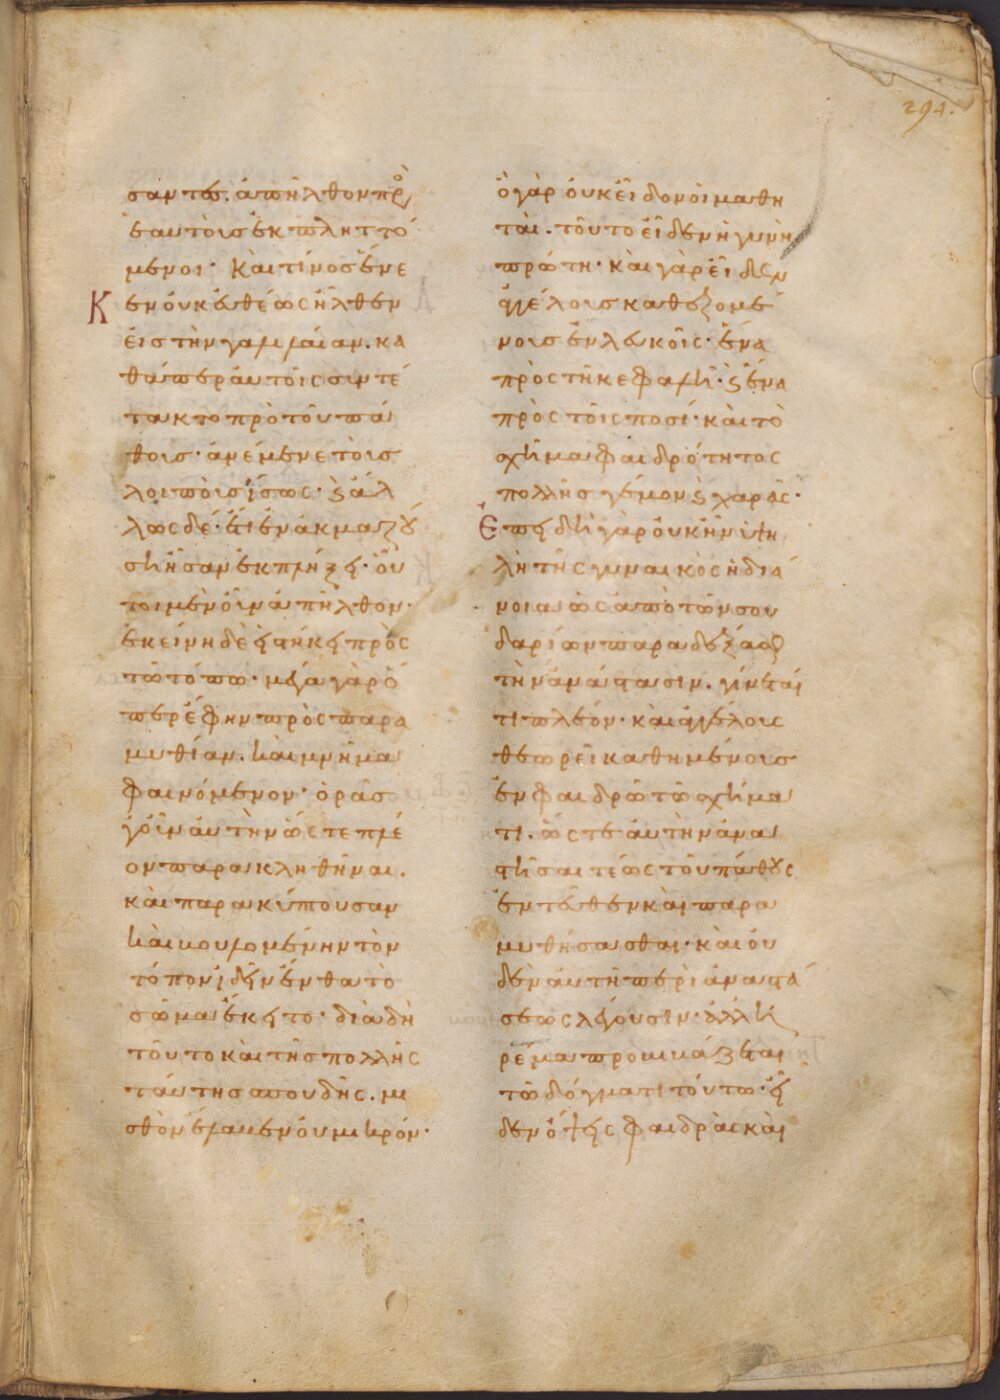 294.
σαντες. ἀπῆλθον πρὸ
ἑαυτοὺσ ἐκπληττό
μενοι· Καὶ τίνος ἕνε
κεν οὐκ εὐθέως ἦλθεν
εἰς τὴν γαλιλαίαν. κα
θάπερ αὐτοῖς συντέ
τακτο πρὸ τοῦ πά
θους· ἀνέμενε τοὺσ
λοιποὺσ ἴσως· ϗ ἄλ
λως δὲ· ἔτι ἐν ἀκμαζού
ση ἦσαν ἐκπλήξει· οὗ
τοι μὲν οὖν ἀπῆλθον·
ἐκείνη δὲ εἱστήκει πρὸς
τῶ τόπω· μέγα γὰρ ὅ
περ ἔφην πρὸς παρα
μυθίαν. καὶ μνῆμα
φαινόμενον· ὁρᾶς
γοῦν αὐτὴν ὥστε πλέ
ον παρακληθῆναι.
καὶ παρακύπτουσαν
καὶ βουλομένην τὸν
τόπον ἰδεῖν ἔνθα τὸ
σῶμα ἔκειτο· διὰ δὴ
τοῦτο καὶ τῆσ πολλῆς
ταύτησ σπουδῆς. μι
σθὸν ἔλαβεν οὐ μικρόν·
ὃ γὰρ οὐκ εἶδον οἱ μαθη
ταὶ. τοῦτο εἶδεν ἡ γυνὴ
πρώτη· καὶ γὰρ εἶδεν
ἀγγέλους καθεζομέ
νουσ ἐν λευκοῖς· ἕνα
πρὸς τῆ κεφαλῆ· ϗ ἕνα
πρὸς τοῖς ποσί· καὶ τὸ
σχῆμα φαιδρότητος
πολλῆσ γέμον ϗ χαρᾶς·
Ἐπειδὴ γὰρ οὐκ ἦν ὑψη
λὴ τῆς γυναικὸς ἡ διά
νοια ὡς ἀπὸ τῶν σου
δαρίων παραδέξασθαι
τὴν ἀνάστασιν. γίνεταί
τι πλέον· καὶ ἀγγέλους
θεωρεῖ καθημένουσ
ἐν φαιδρῶ τῶ σχήμα
τι. ὥστε αὐτὴν ἀνα
στῆσαι τέως τοῦ πάθους
ἐντεῦθεν καὶ παρα
μυθήσασθαι· καὶ οὐ
δὲν αὐτῆ περὶ ἀναστά
σεως λέγουσιν· ἀλλ' ἠ
ρέμα προβιβάζεται
τῶ δόγματι τούτω· εἶ
δεν ὄψεις φαιδρὰς καὶ